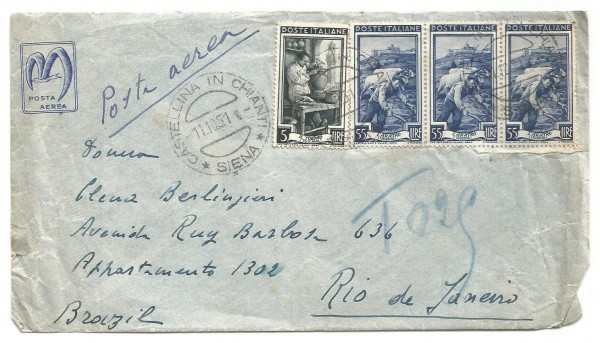 POSTA
AEREA
Posta aerea
CASTELLINA IN CHIANTI
11.10.51
* SIENA *
POSTE ITALIANE
5 LIRE
POSTE ITALIANE
55 LIRE
POSTE ITALIANE
55 LIRE
POSTE ITALIANE
55 LIRE
Elena Berlingieri
Avenida Ruy Barbosa 636
Appartamento 1302
Rio de Janeiro
Brazil